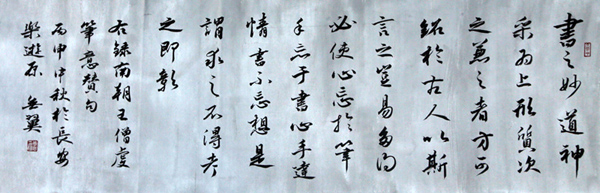 書之妙道神
采為上形質次
之兼之者方可
紹於古人以斯
言之豈易多得
必使心忘於筆
手忘于書心手達
情書不忘想是
謂求之不得考
之即彰
右録南朝王僧虔
筆意贊句
丙申中秋於長安
樂遊原 翼